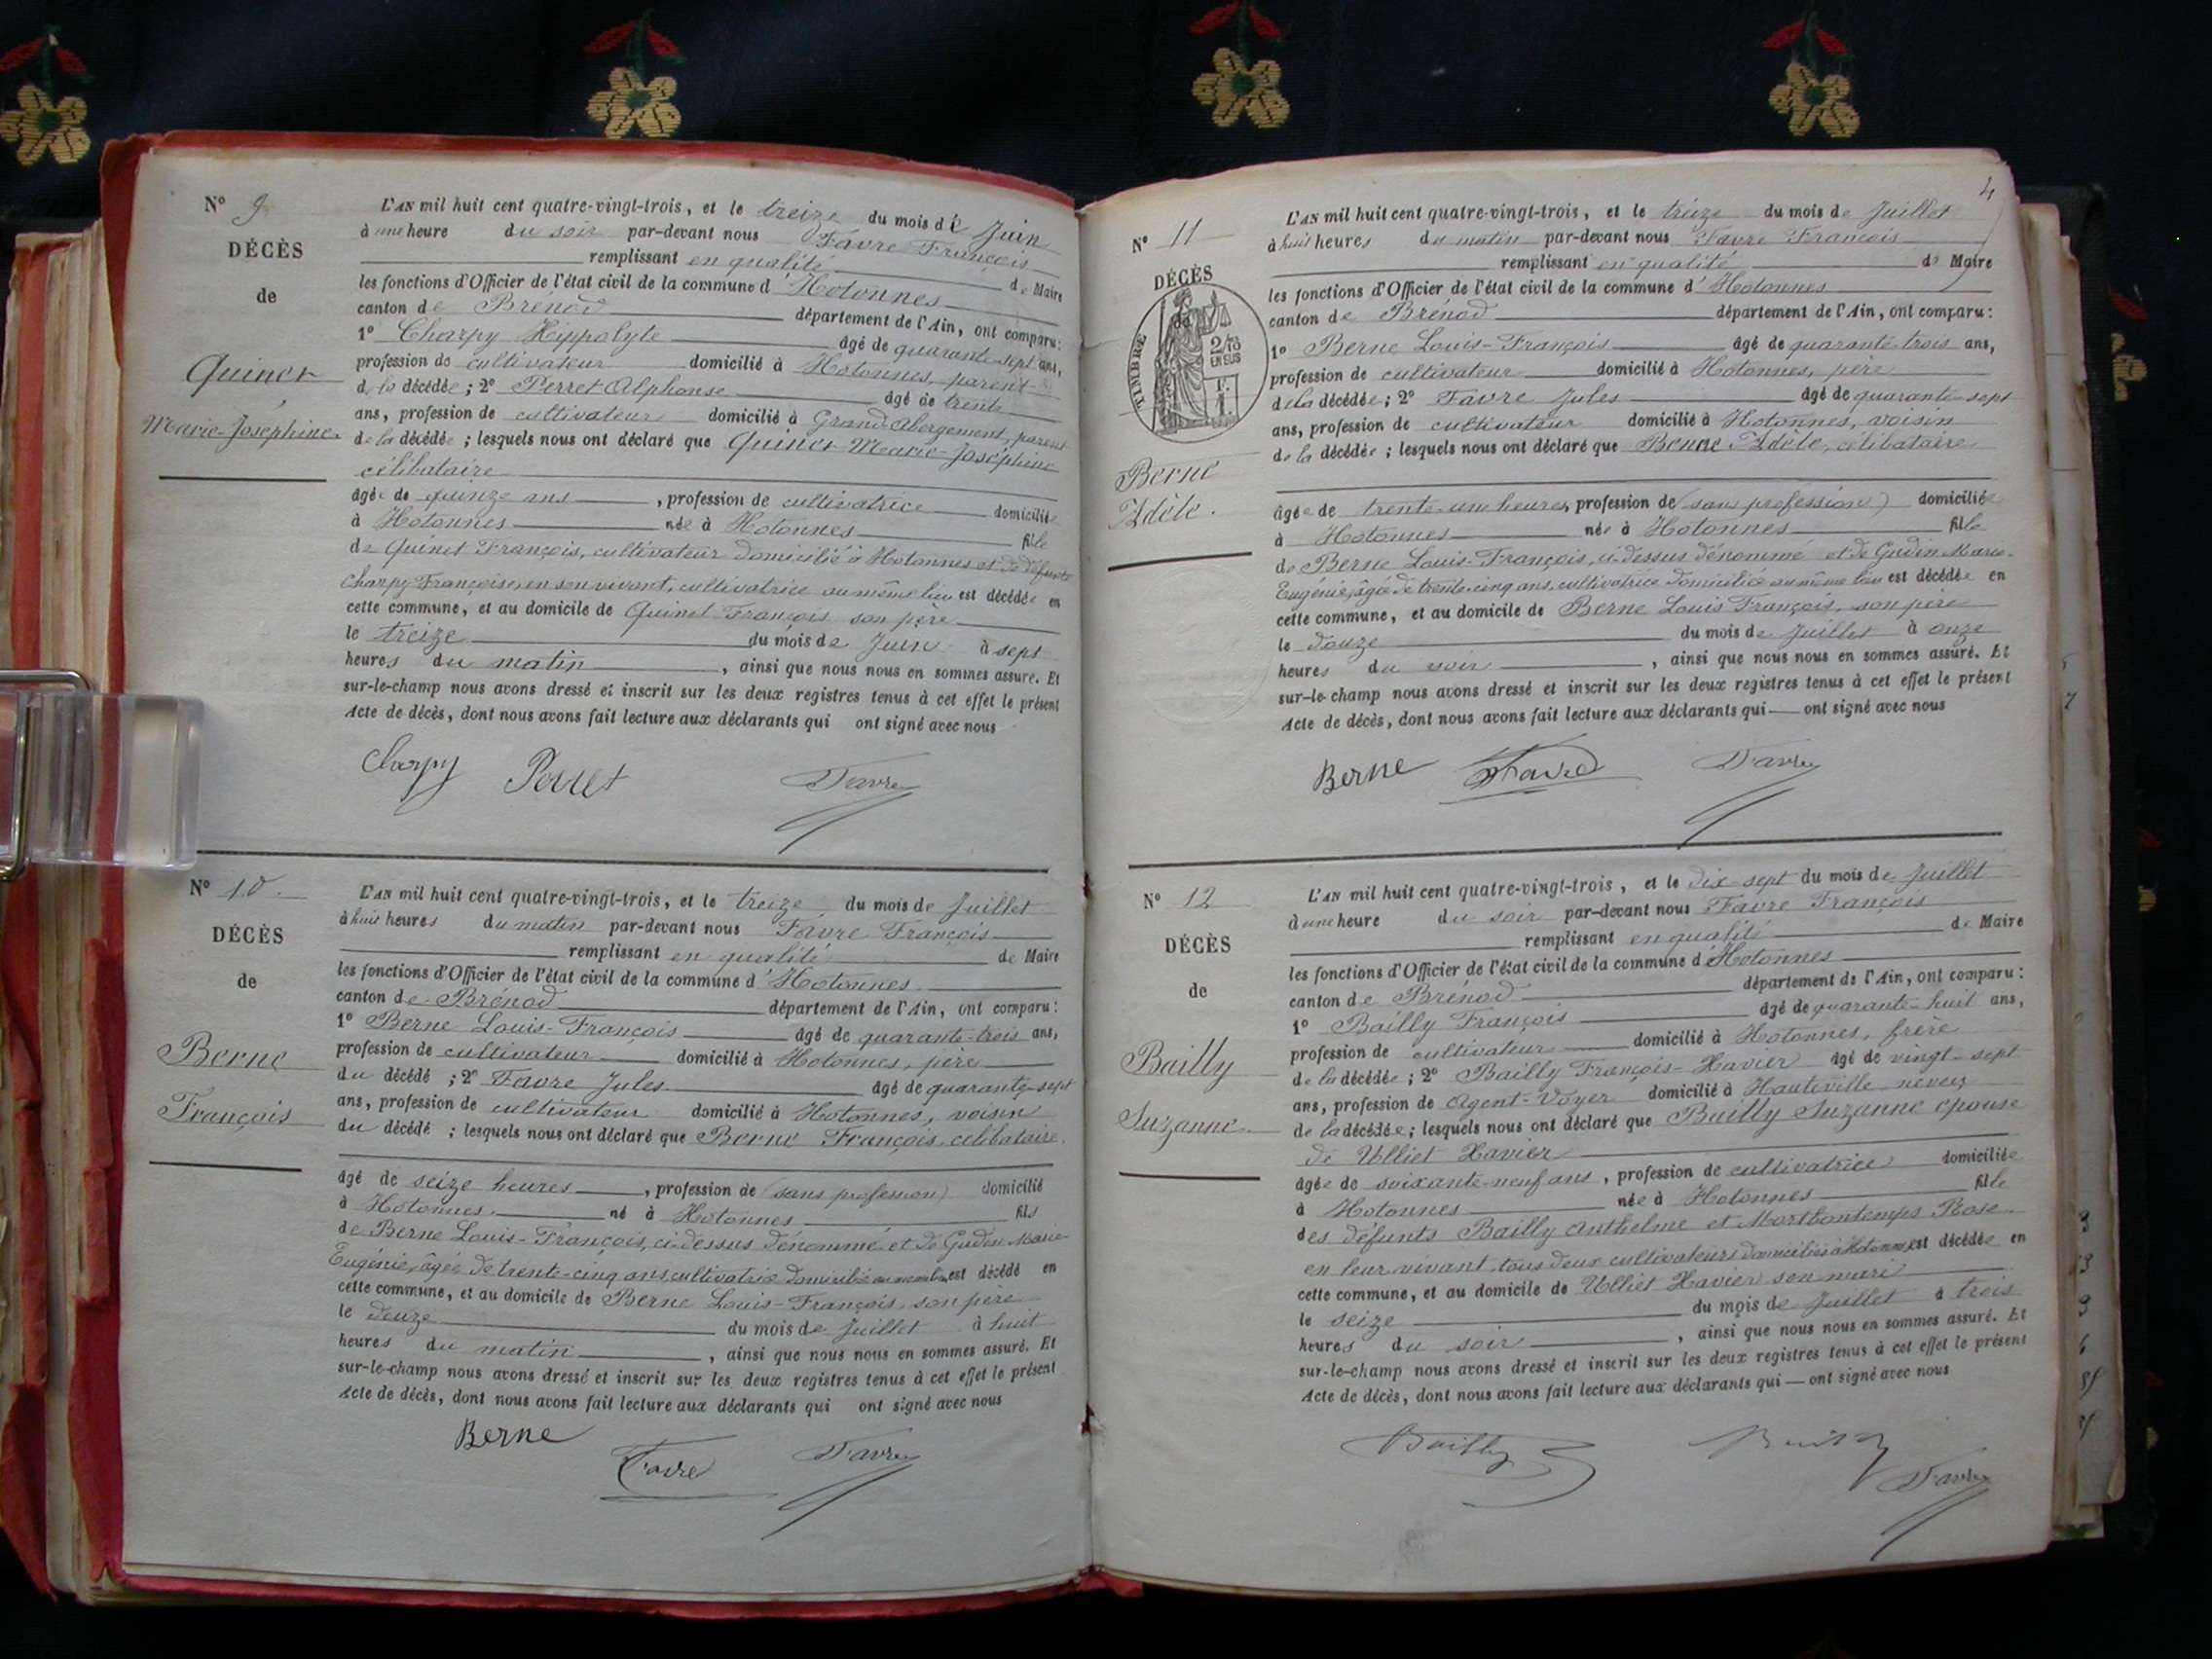 N° 9
DÉCÈS
de
Quinet
Marie-Joséphine.
L'AN mil huit cent quatre-vingt-trois, et le treize du mois de Juin
à une heure du soir par-devant nous Favre François
remplissant en qualité de Maire
les fonctions d'Officier de l'état civil de la commune d'Hotonnes
canton de Brénod département de l'Ain, ont comparu:
1° Charpy Hippolyte âgé de quarante-sept ans,
profession de cultivateur domicilié à Hotonnes, parent
de la décédée; 2° Perret Alphonse âgé de trente
ans, profession de cultivateur domicilié à Grand Abergement, parent
de la décédée; lesquels nous ont déclaré que Quinet Marie-Joséphine
célibataire
âgée de quinze ans, profession de cultivatrice domiciliée
à Hotonnes née à Hotonnes fille
de Quinet François, cultivateur domicilié à Hotonnes et de défunte
Charpy Françoise, en son vivant, cultivatrice au même lieu est décédée en
cette commune, et au domicile de Quinet François son père
le treize du mois de Juin à sept
heures du matin, ainsi que nous nous en sommes assuré. Et
sur-le-champ nous avons dressé et inscrit sur les deux registres tenus à cet effet le présent
Acte de décès, dont nous avons fait lecture aux déclarants qui ont signé avec nous
Charpy Perret Favre
N° 10.
DÉCÈS
de
Berne
François
L'AN mil huit cent quatre-vingt-trois, et le treize du mois de Juillet
à huit heures du matin par-devant nous Favre François
remplissant en qualité de Maire
les fonctions d'Officier de l'état civil de la commune d'Hotonnes
canton de Brénod département de l'Ain, ont comparu:
1° Berne Louis-François âgé de quarante-trois ans,
profession de cultivateur domicilié à Hotonnes, père
du décédé; 2° Favre Jules âgé de quarante-sept
ans, profession de cultivateur domicilié à Hotonnes, voisin
du décédé; lesquels nous ont déclaré que Berne François, célibataire.
âgé de seize heures, profession de (sans profession) domicilié
à Hotonnes. né à Hotonnes fils
de Berne Louis-François, ci-dessus dénommé et de Gudin Marie
Eugénie, âgée de trente-cinq ans, cultivatrice domiciliée au même lieu est décédé en
cette commune, et au domicile de Berne Louis-François, son père
le douze du mois de Juillet à huit
heures du matin, ainsi que nous nous en sommes assuré. Et
sur-le-champ nous avons dressé et inscrit sur les deux registres tenus à cet effet le présent
Acte de décès, dont nous avons fait lecture aux déclarants qui ont signé avec nous
Berne Favre Favre
4
N° 11
DÉCÈS
de
TIMBRE
2/10
EN SUS
1 F.
Berne
Adèle.
L'AN mil huit cent quatre-vingt-trois, et le treize du mois de Juillet
à huit heures du matin par-devant nous Favre François
remplissant en qualité de Maire
les fonctions d'Officier de l'état civil de la commune d'Hotonnes
canton de Brénod département de l'Ain, ont comparu:
1° Berne Louis-François âgé de quarante-trois ans,
profession de cultivateur domicilié à Hotonnes, père
de la décédée; 2° Favre Jules âgé de quarante-sept
ans, profession de cultivateur domicilié à Hotonnes, voisin
de la décédée; lesquels nous ont déclaré que Berne Adèle, célibataire
âgée de trente-une heures, profession de (sans profession) domiciliée
à Hotonnes née à Hotonnes fille
de Berne Louis-François, ci-dessus dénommé et de Gudin Marie-
Eugénie, âgée de trente-cinq ans, cultivatrice domiciliée au même lieu est décédée en
cette commune, et au domicile de Berne Louis François, son père
le douze du mois de Juillet à onze
heures du soir, ainsi que nous nous en sommes assuré. Et
sur-le-champ nous avons dressé et inscrit sur les deux registres tenus à cet effet le présent
Acte de décès, dont nous avons fait lecture aux déclarants qui — ont signé avec nous
Berne Favre Favre
N° 12
DÉCÈS
de
Bailly
Suzanne.
L'AN mil huit cent quatre-vingt-trois, et le dix-sept du mois de Juillet
à une heure du soir par-devant nous Favre François
remplissant en qualité de Maire
les fonctions d'Officier de l'état civil de la commune d'Hotonnes
canton de Brénod département de l'Ain, ont comparu:
1° Bailly François âgé de quarante-huit ans,
profession de cultivateur domicilié à Hotonnes, frère
de la décédée; 2° Bailly François-Xavier âgé de vingt-sept
ans, profession de Agent-Voyer domicilié à Hauteville neveu
de la décédée; lesquels nous ont déclaré que Bailly Suzanne épouse
de Ulliet Xavier
âgée de soixante-neuf ans, profession de cultivatrice domiciliée
à Hotonnes née à Hotonnes fille
des défunts Bailly Anthelme et Martbontemps Rose
en leur vivant tous deux cultivateurs domiciliés à Hotonnes, est décédée en
cette commune, et au domicile de Ulliet Xavier son mari
le seize du mois de Juillet à trois
heures du soir, ainsi que nous nous en sommes assuré. Et
sur-le-champ nous avons dressé et inscrit sur les deux registres tenus à cet effet le présent
Acte de décès, dont nous avons fait lecture aux déclarants qui — ont signé avec nous
Bailly Bailly Favre